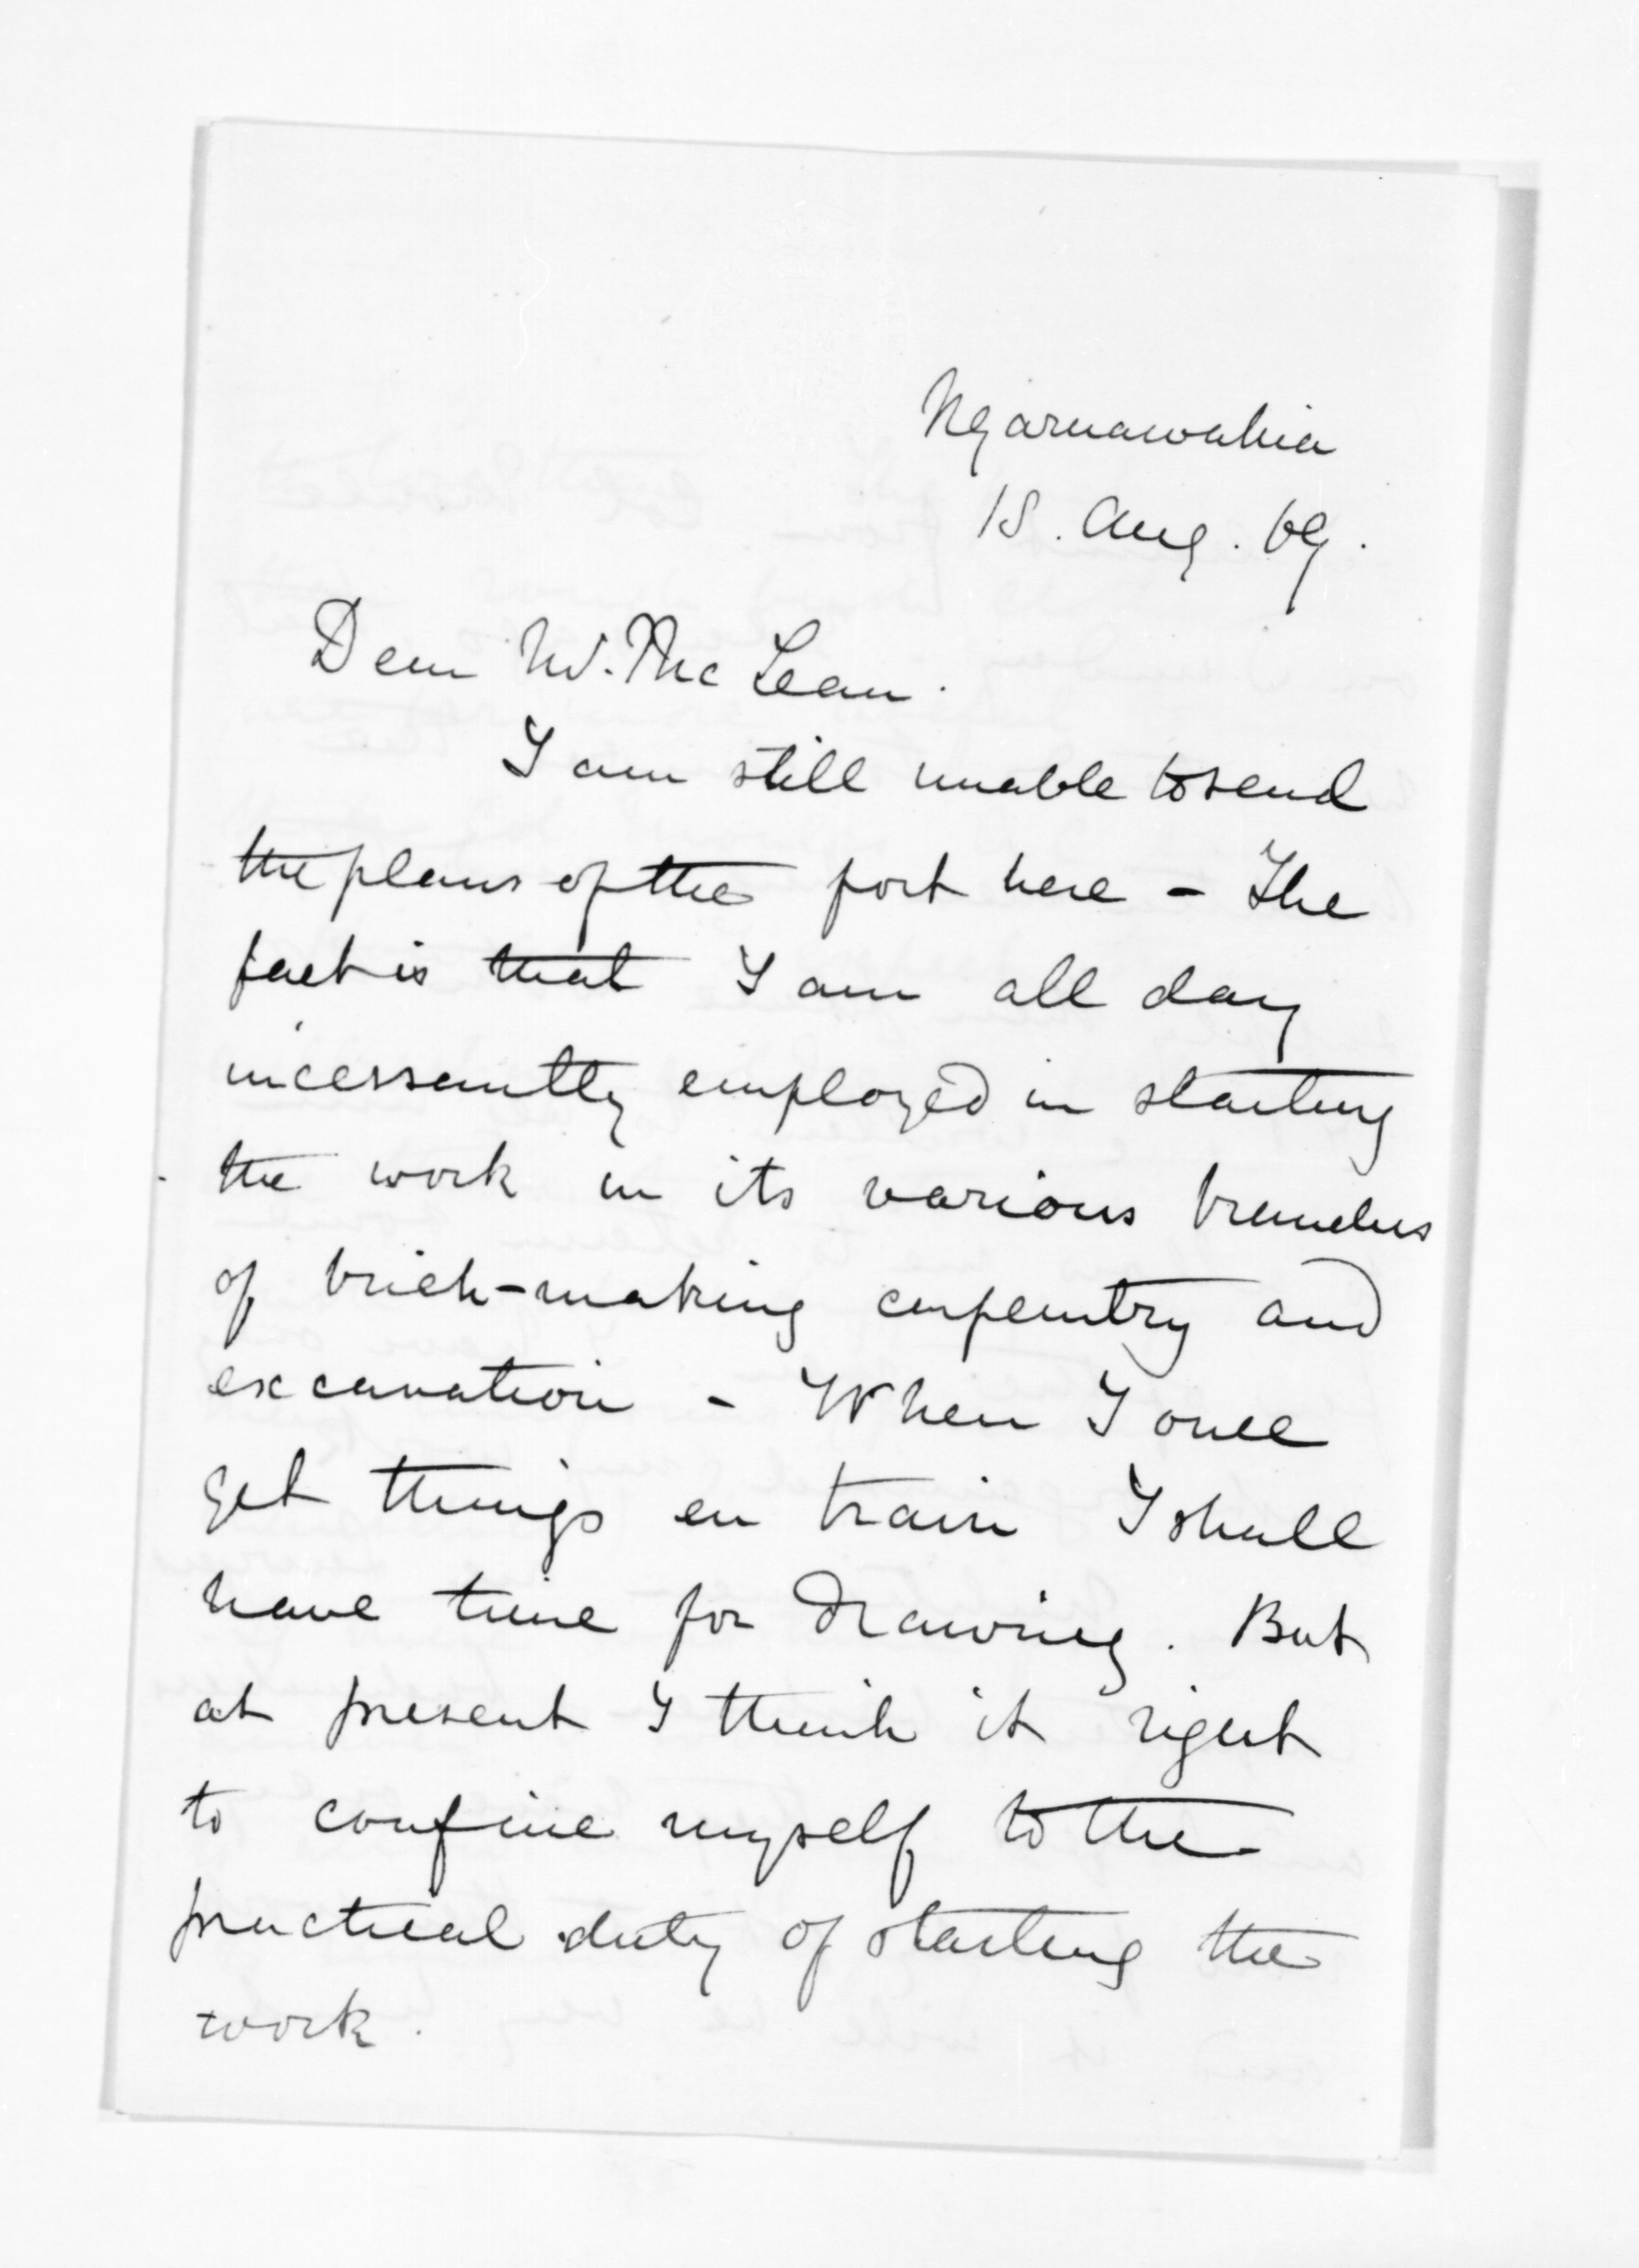 Ngaruawahia
18. Aug. 69.
Dear Mr. McLean.
I am still unable to send
the plans of the fort here - The
fact is that I am all day
incessantly employed in starting
the work in its various branches
of brick-making carpentry and
excavation - When I once
get things en train I shall
have time for drawing. But
at present I think it right
to confine myself to the
practical duty of starting the
work.